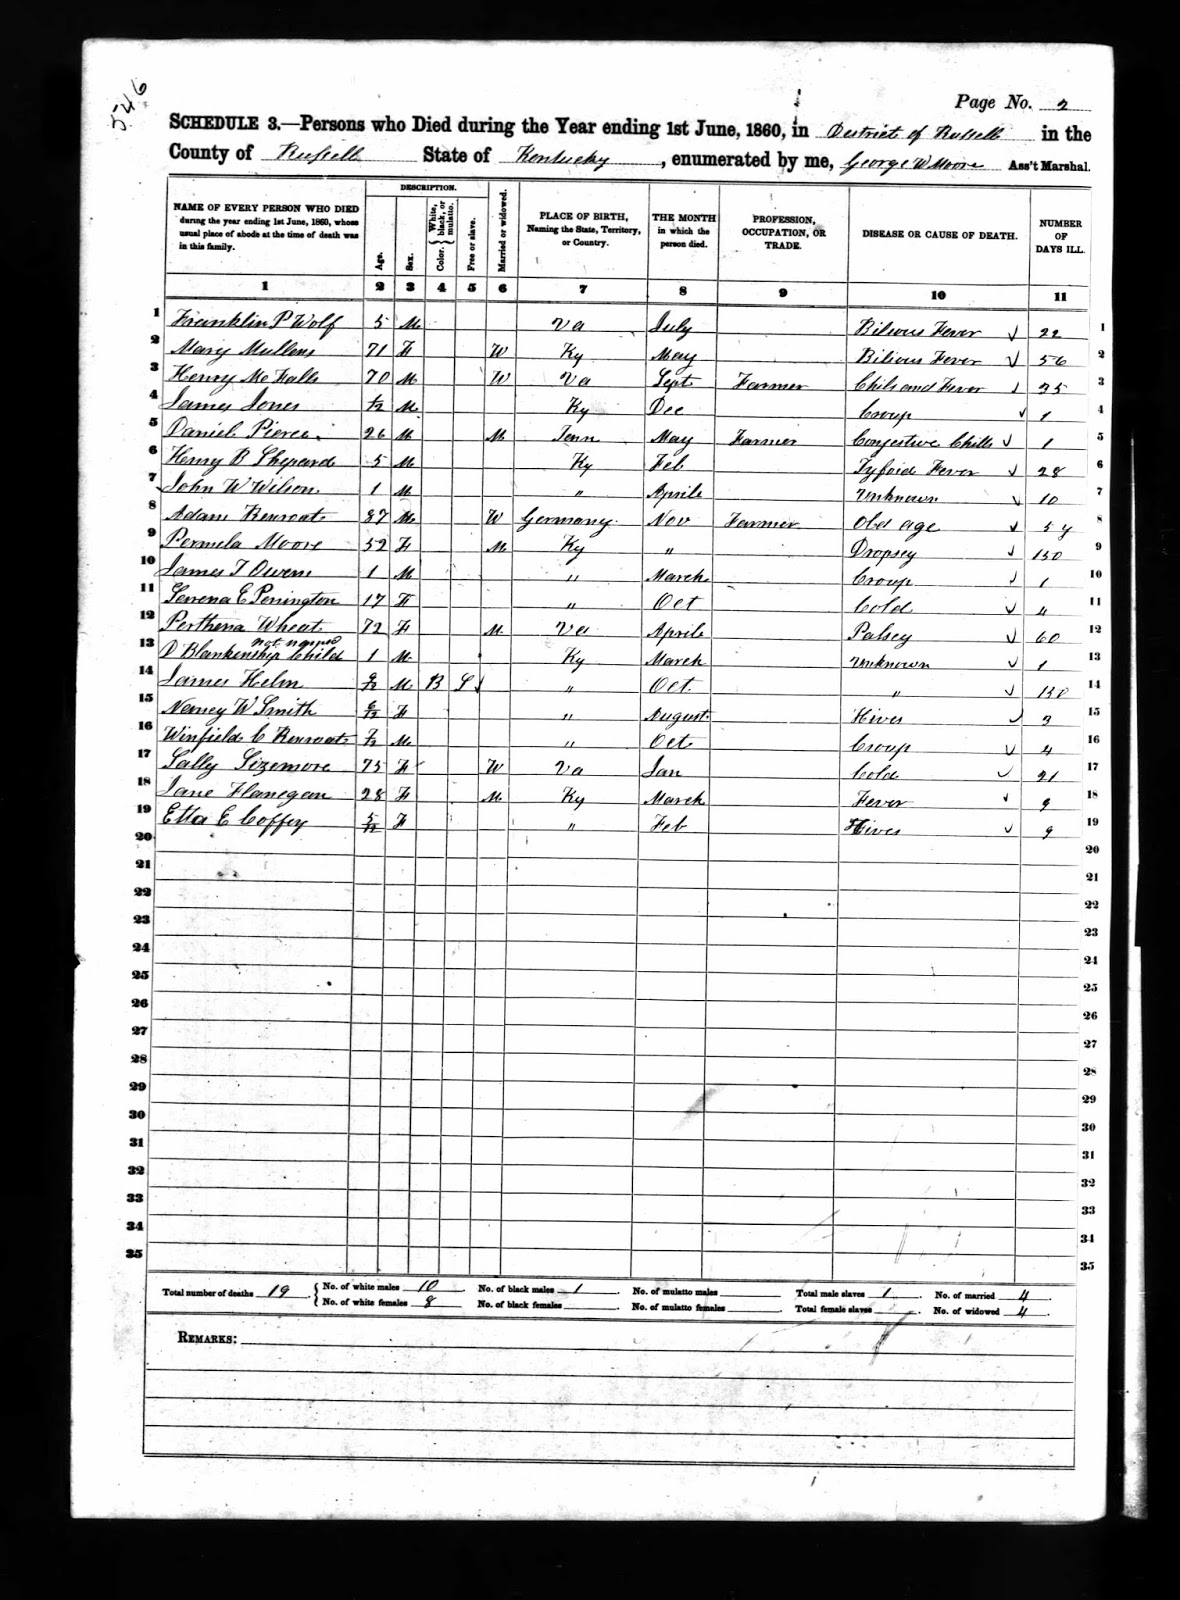 546
Page No. 2
SCHEDULE 3.—Persons who Died during the Year ending 1st June, 1860, in District of Russell in the
County of Russell State of Kentucky, enumerated by me, George W Moore Ass't Marshal.
NAME OF EVERY PERSON WHO DIED during the year ending 1st June, 1860, whose usual place of abode at the time of death was in this family. DESCRIPTION. Age. Sex. Color. { White, black, or mulatto. } Free or slave. Married or widowed. PLACE OF BIRTH, Naming the State, Territory, or Country. THE MONTH in which the person died. PROFESSION, OCCUPATION, OR TRADE. DISEASE OR CAUSE OF DEATH. NUMBER OF DAYS ILL.
1 2 3 4 5 6 7 8 9 10 11
1 Franklin P Wolf 5 M Va July Bilious Fever ✓ 22 1
2 Mary Mullens 71 F W Ky May Bilious Fever ✓ 56 2
3 Henry McFalls 70 M W Va Sept Farmer Chils and Fever ✓ 35 3
4 James Jones 1/12 M Ky Dec Croup ✓ 1 4
5 Daniel Pierce 26 M M Tenn May Farmer Conjestive Chills ✓ 1 5
6 Henry B Shepard 5 M Ky Feb Tyfoid Fever ✓ 28 6
7 John W Wilson 1 M " Aprile Unknown ✓ 10 7
8 Adam 87 M W Germany Nov Farmer Old age ✓ 5 y 8
9 Permela Moore 52 F M Ky " Dropsey ✓ 150 9
10 James T Owens 1 M " March Croup ✓ 1 10
11 E Penington 17 F " Oct Cold ✓ 4 11
12 Perthena Wheat 72 F M Va Aprile Palsey ✓ 60 12
not named
13 D Blankenship Child 1 M Ky March Unknown ✓ 1 13
14 James Helm 9/12 M B S ✓ " Oct " ✓ 150 14
15 Nancy W Smith 6/12 F " August Hives ✓ 3 15
16 Winfield C 7/12 M " Oct Croup ✓ 4 16
17 Sally Sizemore 75 F W Va Jan Cold ✓ 21 17
18 Jane Flanegan 28 F M Ky March Fever ✓ 9 18
19 Etta E Coffey 5/12 F " Feb Hives ✓ 9 19
20 20
21 21
22 22
23 23
24 24
25 25
26 26
27 27
28 28
29 29
30 30
31 31
32 32
33 33
34 34
35 35
Total number of deaths 19 { No. of white males 10 No. of black males 1 No. of mulatto males Total male slaves 1 No. of married 4
{ No. of white females 8 No. of black females No. of mulatto females Total female slaves No. of widowed 4
REMARKS: